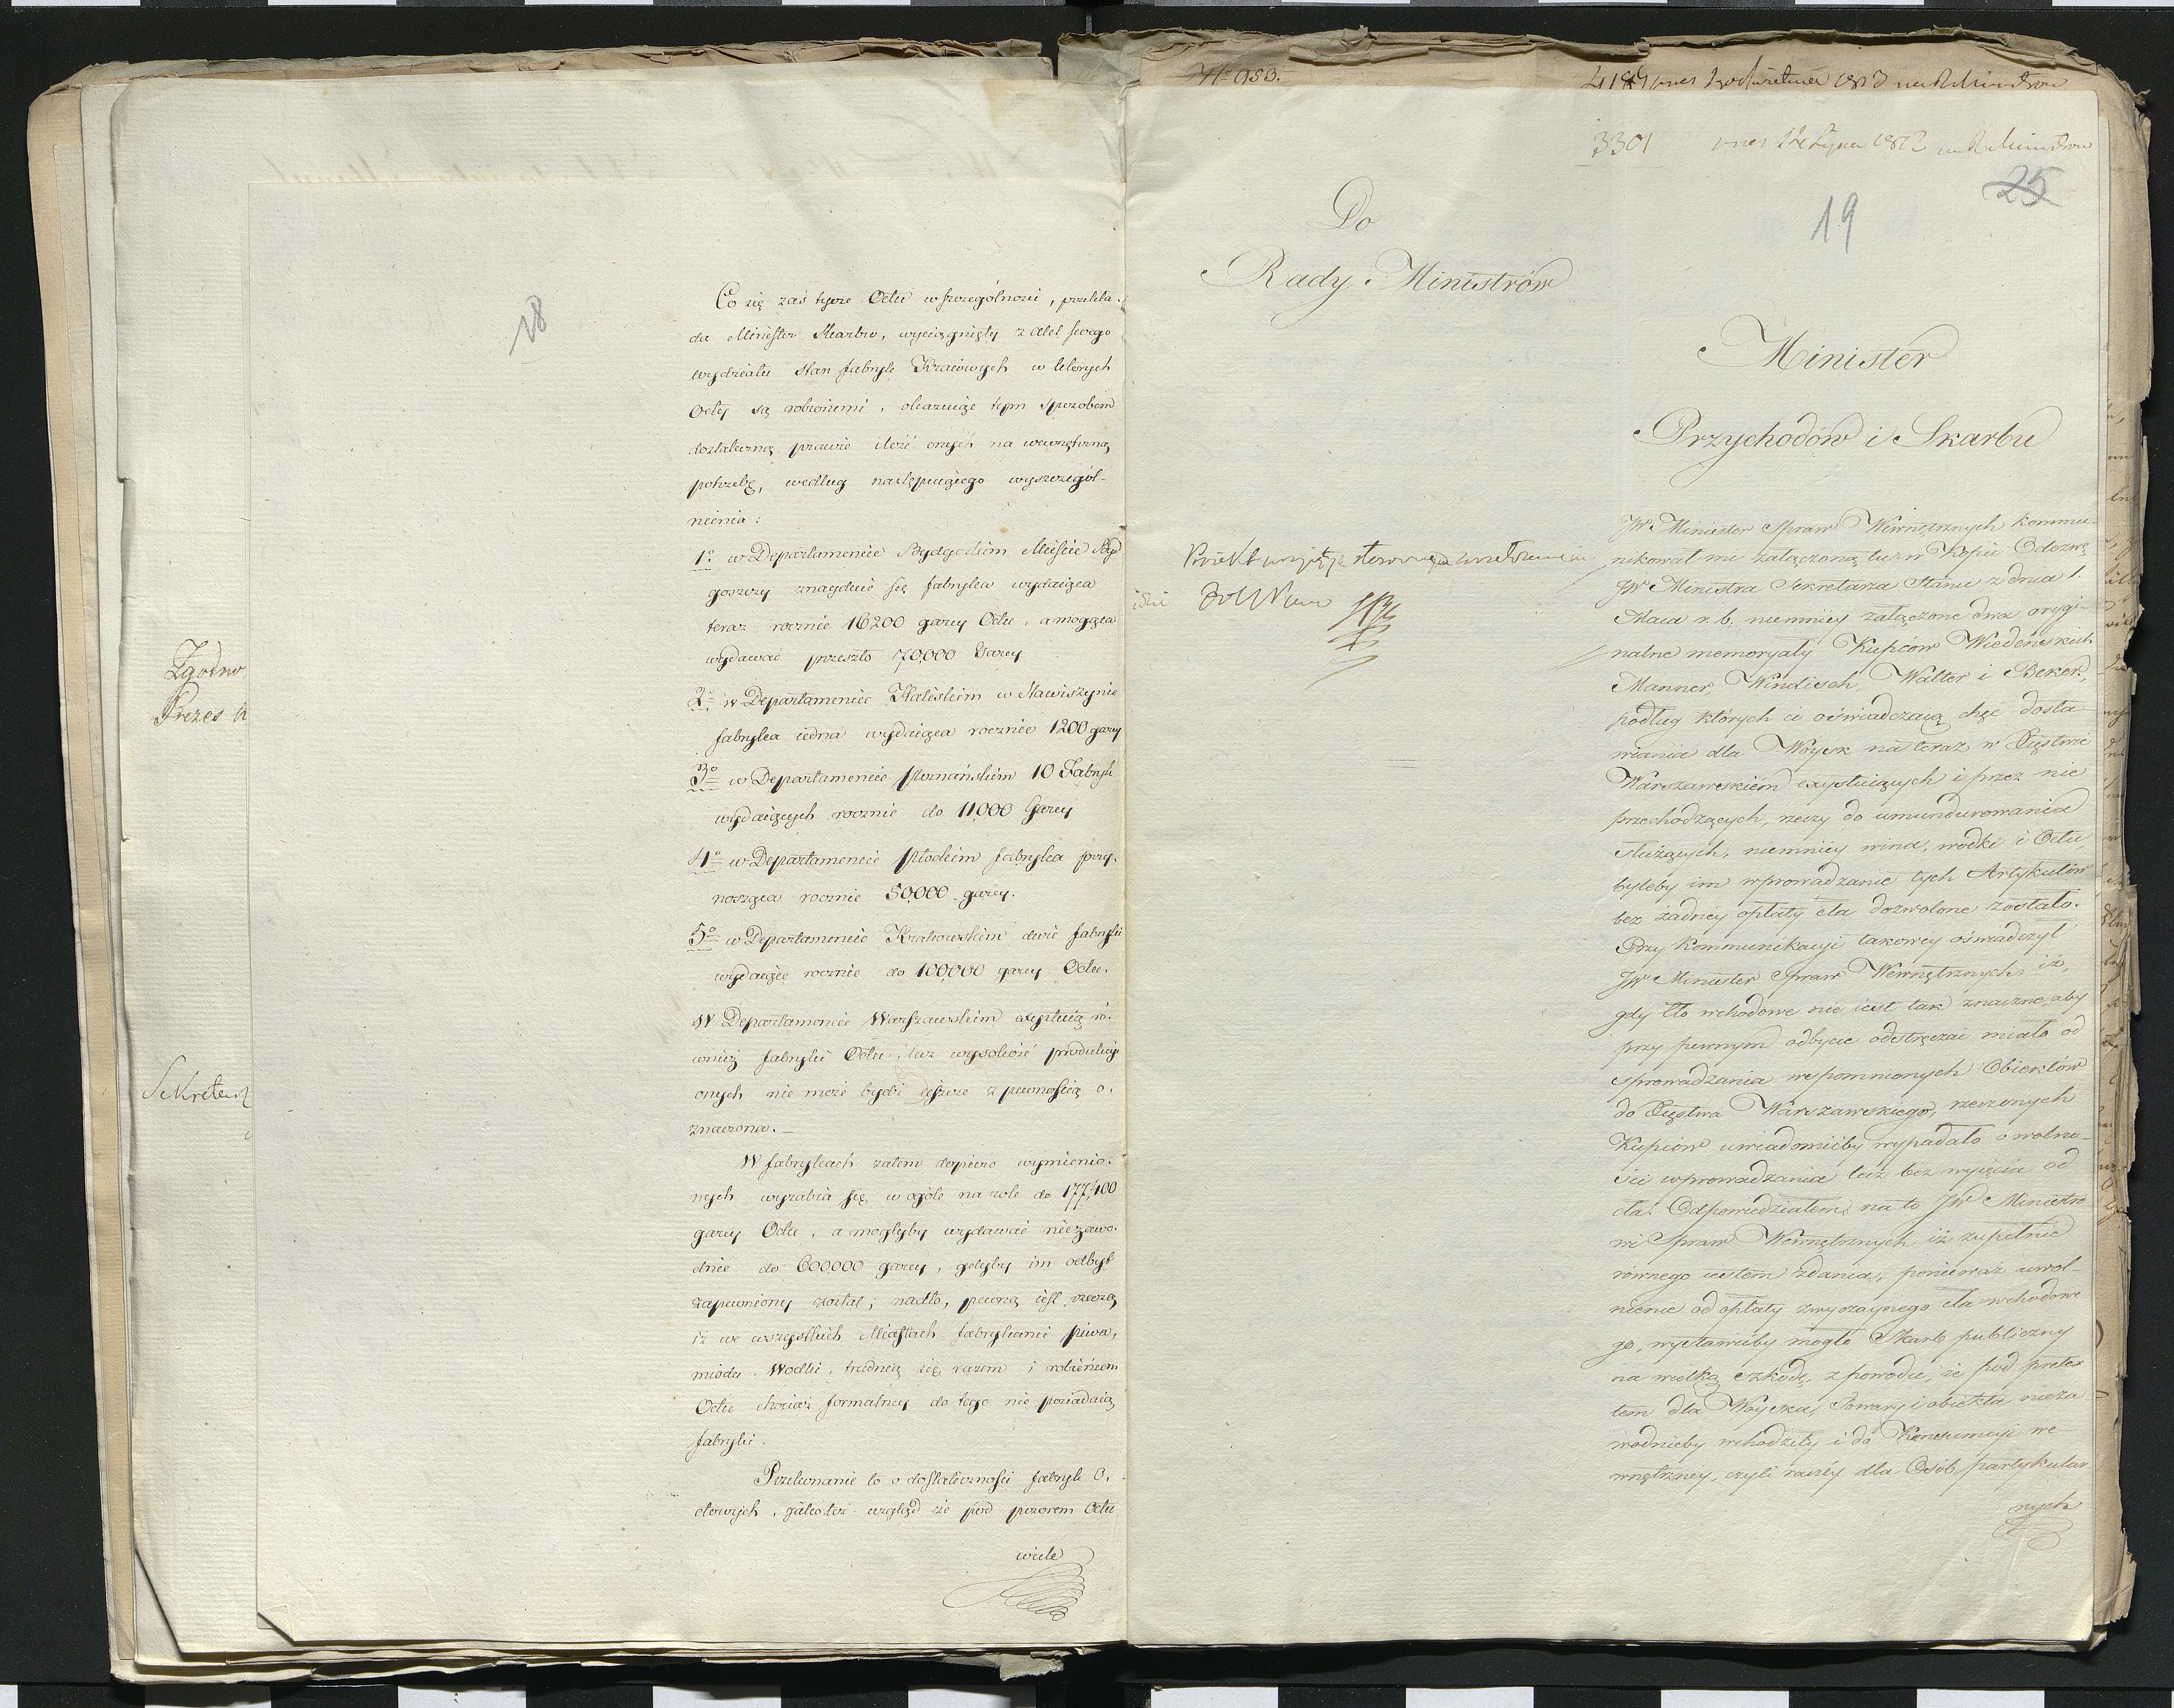 18
Co się zaś tycze Octu w szczególnosci, przekła-
da Minister Skarbu, wyciągnięty z Akt swego
wydziału Stan fabryk Kraiowych w ktorych
Octy są robionemi, okazuiąc tym sposobem
dostateczną prawie ilość onych na wewnętrzną
potrzebę, według następuiącego wyszczegól-
nienia:
1o w Departamencie Bydgoskim Mieście Byd
goszczy znayduie się fabryka wydaiąca
teraz rocznie 16200 garcy Octu, a mogąca
wydawać przeszło 70,000 Garcy
2o w Departamencie Kaliskim w Stawiszynie
fabryka iedna wydaiąca rocznie 1200 garcy
3o w Departamencie Poznańskim 10 Fabryk
wydaiących rocznie do 11,000 Garcy
4o w Departamencie Płockim fabryka przy-
nosząca rocznie 50,000 garcy.
5o w Departamencie Krakowskim dwie fabryki
wydaiące rocznie do 100,000 garcy Octu.
W Departamencie Warszawskim exystuią ró-
wnież fabryki Octu, lecz wysokość produkcyi
onych nie może bydź ieszcze z pewnością o-
znaczona. —
W fabrykach zatem dopiero wymienio-
nych wyrabia się w ogóle na rok do 177,400
garcy Octu, a mogłyby wydawać niezawo-
dnie do 600000 garcy, gdyby im odbyt
zapewniony został; nadto, pewną iest rzeczą
iż we wszystkich Miastach fabrykanci piwa,
miodu, Wodki, trudnią się razem i robieniem
Octu chociaż formalney do tego nie posiadaią
fabryki.
Przekonanie to o dostateczności fabryk O-
ctowych, iako też wzgląd że pod pozorem Octu
wiele
Zgodno
Prezes
Sekretarz
No 953.
3301 wnes 12 Lipca 1812 na R Ministrow
25
19
Do
Rady Ministrów
Minister
Przychodów i Skarbu
JW Minister Spraw Wewnętrznych kommu-
nikował mi załączoną tu w Kopii Odezwę
JW Ministra Sekretarza Stanu z dnia 1.
Maia r. b. niemniey załączone dwa orygi-
nalne memoryały Kupców Wiedeńskich
Manner, Windisch, Walter i Beker,
podług których ci oświadczaią chęć dosta-
wiania dla Woysk na teraz w Xięstwie
Warszawskiém exystuiących i przez nie
przechodzących, rzeczy do umundurowania
służących, niemniey wina, wódki i Octu,
byleby im wprowadzanie tych Artykułów
bez żadney opłaty cła dozwolone zostało.
Przy kommunikacyi takowey oświadczył
JW Minister Spraw Wewnętrznych, iż,
gdy cło wchodowe nie iest tak znaczne, aby
przy pewnym odbycie odstręczać miało od
sprowadzania wspomnionych Obiektów
do Xięstwa Warszawskiego, rzeczonych
Kupców uwiadomićby wypadało o wolno-
ści wprowadzania lecz bez wyięcia od
cła. Odpowiedziałem na to JW Ministro
wi Spraw Wewnętrznych iż zupełnie
równego iestem zdania, ponieważ uwol-
nienie od opłaty zwyczaynego cła wchodowe
go, wystawićby mogło Skarb publiczny
na wielką szkodę, z powodu, że pod pretex
tem dla Woyska, Towary i obiekta nieza
wodnieby wchodziły i do Konsumcyi we-
wnętrzney, czyli raczéy dla Osób partykular
nych